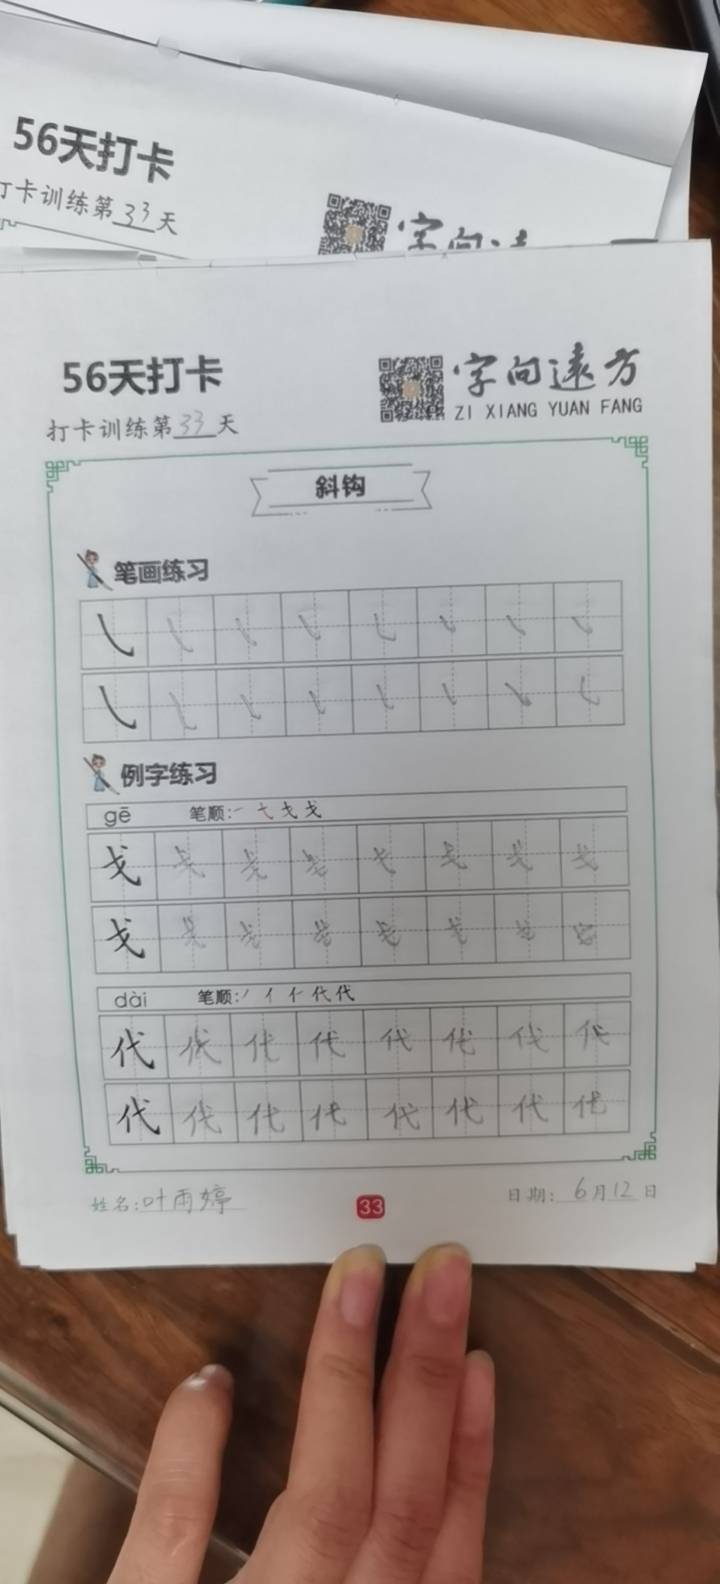 56天打卡
打卡训练第33天
56天打卡
字向远方
打卡训练第33天
ZI XIANG YUAN FANG
斜钩
笔画练习
㇂
㇂
例字练习
gē 笔顺: ㇐ 弋 戈 戈
戈 戈 戈 戈 戈 戈 戈 戈
戈 戈 戈 戈 戈 戈 戈
dài 笔顺: ㇒ 亻 仁 代 代
代 代 代 代 代 代 代 代
代 代 代 代 代 代 代 代
姓名:叶雨婷
33
日期: 6月12日